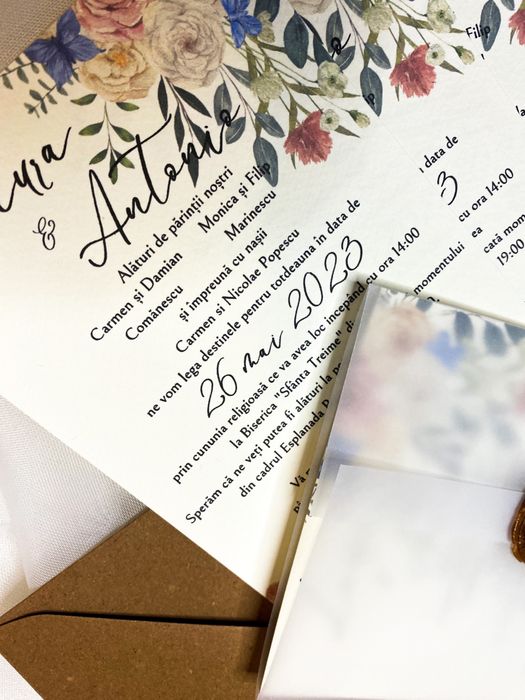 &
Antonio
Alături de părinții noștri
Carmen și Damian Monica și Filip
Comănescu Marinescu
și împreună cu nașii
Carmen și Nicolae Popescu
ne vom lega destinele pentru totdeauna în data de
26 mai 2023
prin cununia religioasă ce va avea loc începând cu ora 14:00
la Biserica "Sfânta Treime" di
Sperăm că ne veți putea fi alături la
din cadrul Esplanada
Vă
Filip
data de
3
cu ora 14:00
momentului
cată
19:00